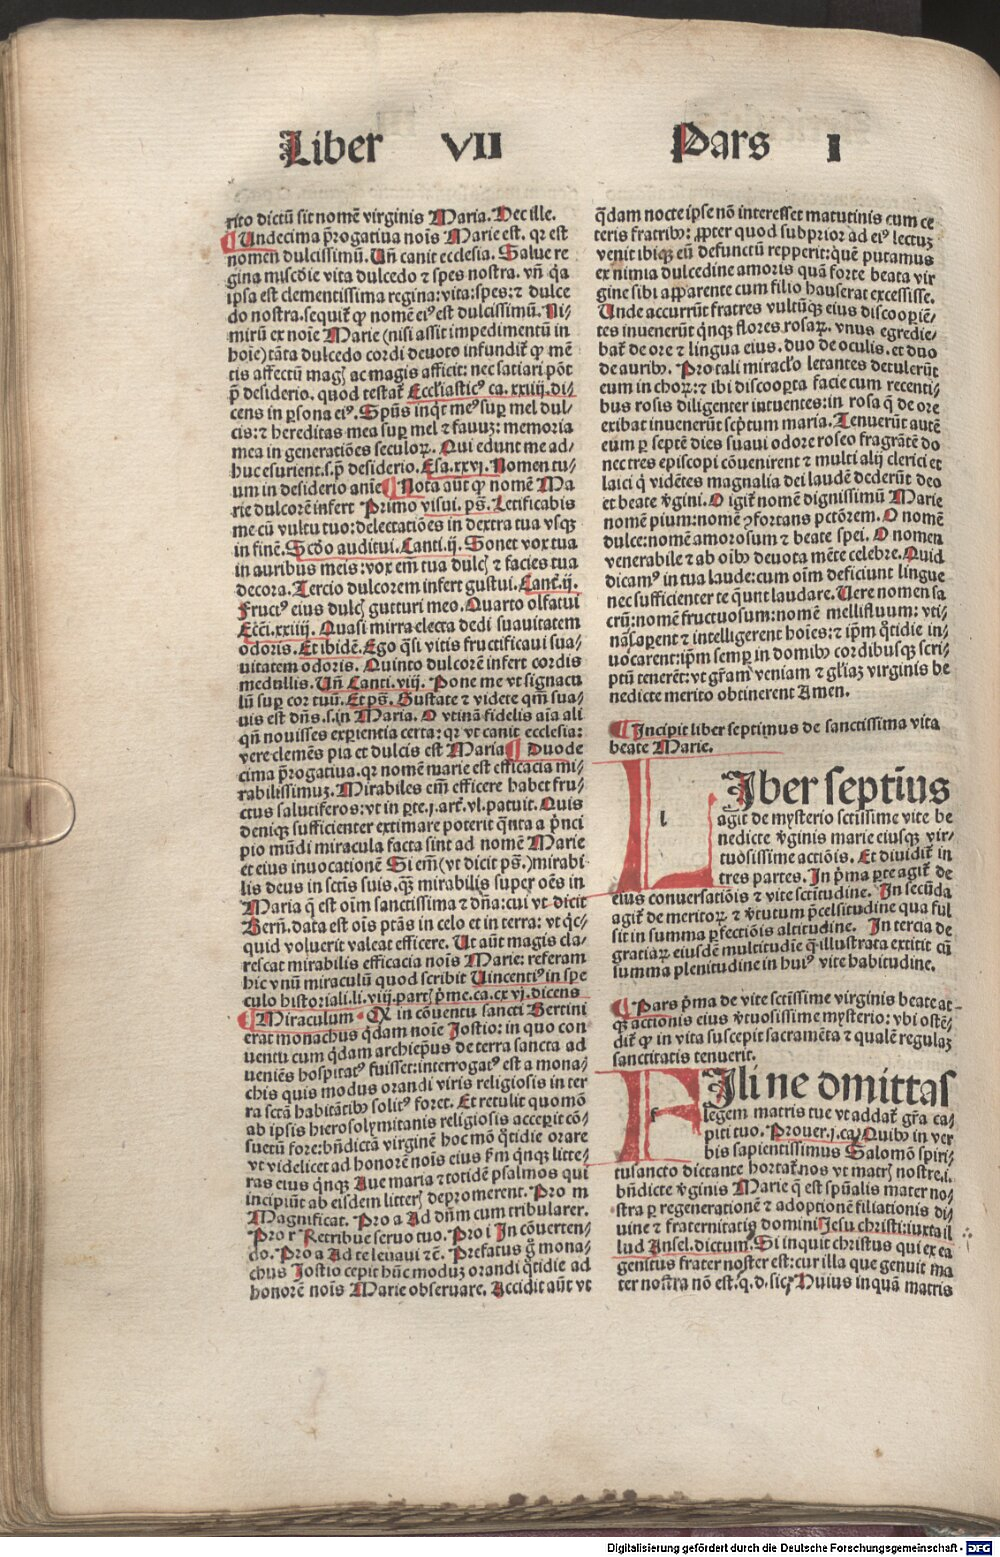 Liber VII Pars I
rito dictū sit nomē virginis Maria. Hec ille.
¶ Undecima p̄rogatiua noīs Marie est. qꝛ est
nomen dulcissimū. Uñ canit ecclesia. Salue re
gina misc̄die vita dulcedo ⁊ spes nostra. vñ q̇a
ipsa est clementissima regina: vita: spes: ⁊ dulce
do nostra. sequit̄ ꝙ nomē eiꝰ est dulcissimū. Ni-
mirū ex noīe Marie (nisi assit impedimentū in
hoīe) tāta dulcedo cordi deuoto infundit̄ ꝙ mē
tis affectū magꝭ ac magis afficit: nec satiari pōt
p̄ desiderio. quod testat̄ Eccl̄iasticꝰ ca. xxiiij. di-
cens in ꝑsona eiꝰ. Spūs inq̇t meꝰ suꝑ mel dul-
cis: ⁊ hereditas mea suꝑ mel ⁊ fauuꝫ: memoria
mea in generatiões seculoꝝ. Qui edunt me ad-
huc esurient. s. p̄ desiderio. Esa. xxvi. Nomen tu-
um in desiderio anīe ¶ Nota aūt ꝙ nomē Ma
rie dulcorē infert Primo visui. ps̄. Letificabis
me cū vultu tuo: delectatiões in dextra tua vsqꝫ
in finē. Scḋo auditui. Canti. ij. Sonet vox tua
in auribus meis: vox em̄ tua dulcꝭ ⁊ facies tua
decora. Tercio dulcorem infert gustui. Cant̄. ij.
Fructꝰ eius dulcꝭ gutturi meo. Quarto olfatui
Ec̄ci. xxiiij. Quasi mirra electa dedi suauitatem
odoris. Et ibidē. Ego q̄si vitis fructificaui sua-
uitatem odoris. Quinto dulcorē infert cordis
medullis. Uñ Canti. viij. Pone me vt signacu
lū suꝑ cor tuū. Et ps̄. Gustate ⁊ videte qm̄ sua-
uis est dn̄s. s. in Maria. O vtinā fidelis aīa ali
qñ nouisses exꝑientia certa: qꝛ vt canit ecclesia:
vere clemēs pia et dulcis est Maria ¶ Duode
cima p̄rogatiua. qꝛ nomē marie est efficacia mi-
rabilissimuꝫ. Mirabiles em̄ efficere habet fru-
ctus salutiferos: vt in ꝑte. j. art̄. vl. patuit. Quis
deniqꝫ sufficienter extimare poterit q̄nta a p̄nci
pio mūdi miracula facta sint ad nomē Marie
et eius inuocationē Si em̄ (vt dicit ps̄.) mirabi-
lis deus in sctīs suis. qꝫ mirabilis super oēs in
Maria q̄ est oīm sanctissima ⁊ dña: cui vt dicit
Bern̄. data est oīs ptās in celo et in terra: vt q̇c-
quid voluerit valeat efficere. Ut aūt magis cla-
rescat mirabilis efficacia noīs Marie: referam
hic vnū miraculū quod scribit Uincentiꝰ in spe
culo historiali. li. viij. partꝭ p̄me. ca. cxvj. dicens
¶ Miraculum. Qꝫ in cōuentu sancti Bertini
erat monachus q̇dam noīe Jostio: in quo con
uentu cum q̇dam archiep̄us de terra sancta ad
ueniēs hospitatꝰ fuisset: interrogatꝰ est a mona-
chis quis modus orandi viris religiosis in ter
ra sctā habitātibꝰ solitꝰ foret. Et retulit quomō
ab ipsis hierosolymitanis religiosis acceꝑit cō-
suetū fore: bn̄dictā virginē hoc mō q̇tidie orare
vt videlicet ad honorē noīs eius ẜm q̇nqꝫ litte-
ras eius q̇nqꝫ Aue maria ⁊ totidē psalmos qui
incipiūt ab eisdem litterꝭ depromerent. Pro m
Magnificat. Pro a Ad dn̄m cum tribularer.
Pro r Retribue seruo tuo. Pro i In cōuerten-
do. Pro a Ad te leuaui ⁊c̄. Prefatus ḡ mona-
chus Jostio cepit hūc moduꝫ orandi q̇tidie ad
honorē noīs Marie obseruare. Accidit aūt vt
q̇dam nocte ipse nō interesset matutinis cum ce
teris fratribꝰ: ꝓpter quod subprior ad eiꝰ lectuꝫ
venit ibiqꝫ eū defunctū repperit: quē putamus
ex nimia dulcedine amoris quā forte beata vir
gine sibi apparente cum filio hauserat excessisse.
Unde accurrūt fratres vultūqꝫ eius discooꝑiē-
tes inuenerūt q̇nqꝫ flores rosaꝝ. vnus egredie-
bat̄ de ore ⁊ lingua eius. duo de oculis. et duo
de auribꝰ. Pro tali miracl̄o letantes detulerūt
eum in choꝝ: ⁊ ibi discooꝑta facie cum recenti-
bus rosis diligenter intuentes: in rosa q̄ de ore
exibat inuenerūt scp̄tum maria. Tenuerūt autē
eum ꝑ septē dies suaui odore roseo fragrātē do
nec tres episcopi cōuenirent ⁊ multi alij clerici et
laici q̇ vidētes magnalia dei laudē dederūt deo
et beate v̄gini. O igit̄ nomē dignissimū Marie
nomē pium: nomē ꝯfortans pctōrem. O nomē
dulce: nomē amorosum ⁊ beate spei. O nomen
venerabile ⁊ ab oībꝰ deuota mēte celebre. Quid
dicamꝰ in tua laude: cum oīm deficiunt lingue
nec sufficienter te q̇unt laudare. Uere nomen sa
crū: nomē fructuosum: nomē mellifluum: vti-
nā saꝑent ⁊ intelligerent hoīes: ⁊ ip̄m q̇tidie in-
uocarent: ip̄m semꝑ in domibꝰ cordibusqꝫ scri-
ptū tenerēt: vt gr̄am veniam ⁊ gl̄iaꝫ virginis be
nedicte merito obtinerent Amen.
¶ Incipit liber septimus de sanctissima vita
beate Marie.
LIber septim̄us
agit de mysterio sctīssime vite be
nedicte v̄ginis marie eiusqꝫ vir-
tuosissime actiōis. Et diuidit̄ in
tres partes. In p̄ma ꝑte agit̄ de
eius conuersatiōis ⁊ vite sctītudine. In secūda
agit̄ de meritoꝝ ⁊ v̄tutum p̄celsitudine qua ful
sit in summa ꝑfectiōis altitudine. In tercia de
gratiaꝝ eiusdē multitudīe q̄ illustrata extitit cū
summa plenitudine in huiꝰ vite habitudine.
¶ Pars p̄ma de vite sctīssime virginis beate at-
qꝫ actionis eius v̄tuosissime mysterio: vbi ostē-
dit̄ ꝙ in vita suscepit sacramēta ⁊ qualē regulaꝫ
sanctitatis tenuerit.
FIli ne dmittas
legem matris tue vt addat̄ gr̄a ca-
piti tuo. Prouer. j. ca. Quibꝰ in ver
bis sapientissimus Salomō spiri-
tusancto dictante hortat̄ nos vt matrꝭ nostre. i.
bn̄dicte v̄ginis Marie q̄ est spūalis mater no-
stra ꝑ regenerationē ⁊ adoptionē filiationis di-
uine ⁊ fraternitatis domini Jesu christi: iuxta il
lud Ansel. dictum. Si inquit christus qui ex ea
genitus frater noster est: cur illa que genuit ma
ter nostra nō est. q. d. sicꝫ Huius inquā matris
Digitalisierung gefördert durch die Deutsche Forschungsgemeinschaft - DFG